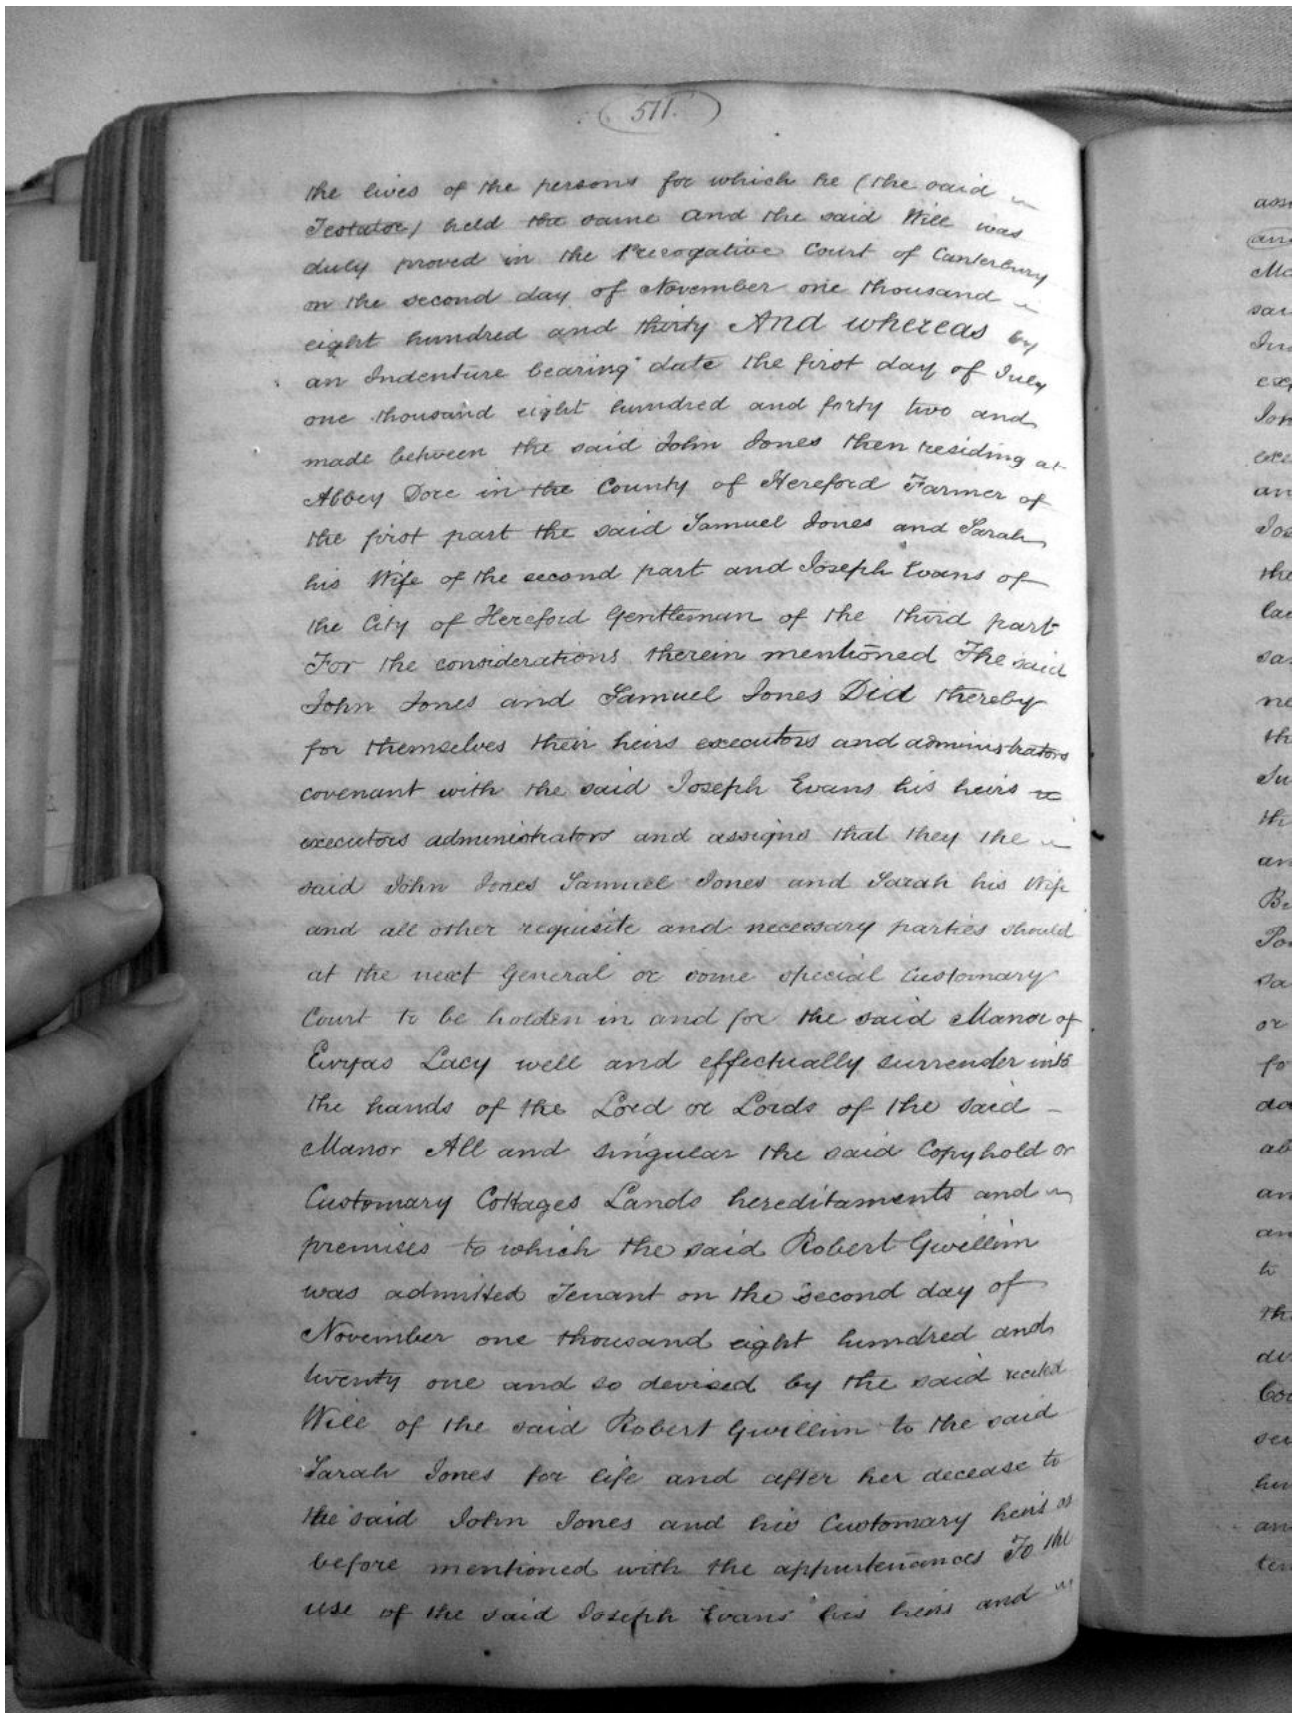 511.
the lives of the persons for which he (the said
Testator) held the same and the said Will was
duly proved in the Prerogative Court of Canterbury
on the second day of November one thousand
eight hundred and thirty And whereas by
an Indenture bearing date the first day of July
one thousand eight hundred and forty two and
made between the said John Jones then residing at
Abbey Dore in the County of Hereford Farmer of
the first part the said Samuel Jones and Sarah
his Wife of the second part and Joseph Evans of
the City of Hereford Gentleman of the third part
For the considerations therein mentioned The said
John Jones and Samuel Jones Did thereby
for themselves their heirs executors and administrators
covenant with the said Joseph Evans his heirs
executors administrators and assigns that they the
said John Jones Samuel Jones and Sarah his Wife
and all other requisite and necessary parties should
at the next General or some special Customary
Court to be holden in and for the said Manor of
Ewyas Lacy well and effectually surrender into
the hands of the Lord or Lords of the said
Manor All and singular the said Copyhold or
Customary Cottages Lands hereditaments and
premises to which the said Robert Gwillim
was admitted Tenant on the second day of
November one thousand eight hundred and
twenty one and so devised by the said recited
Will of the said Robert Gwillim to the said
Sarah Jones for life and after her decease to
the said John Jones and his Customary heirs as
before mentioned with the appurtenances To the
use of the said Joseph Evans his heirs and